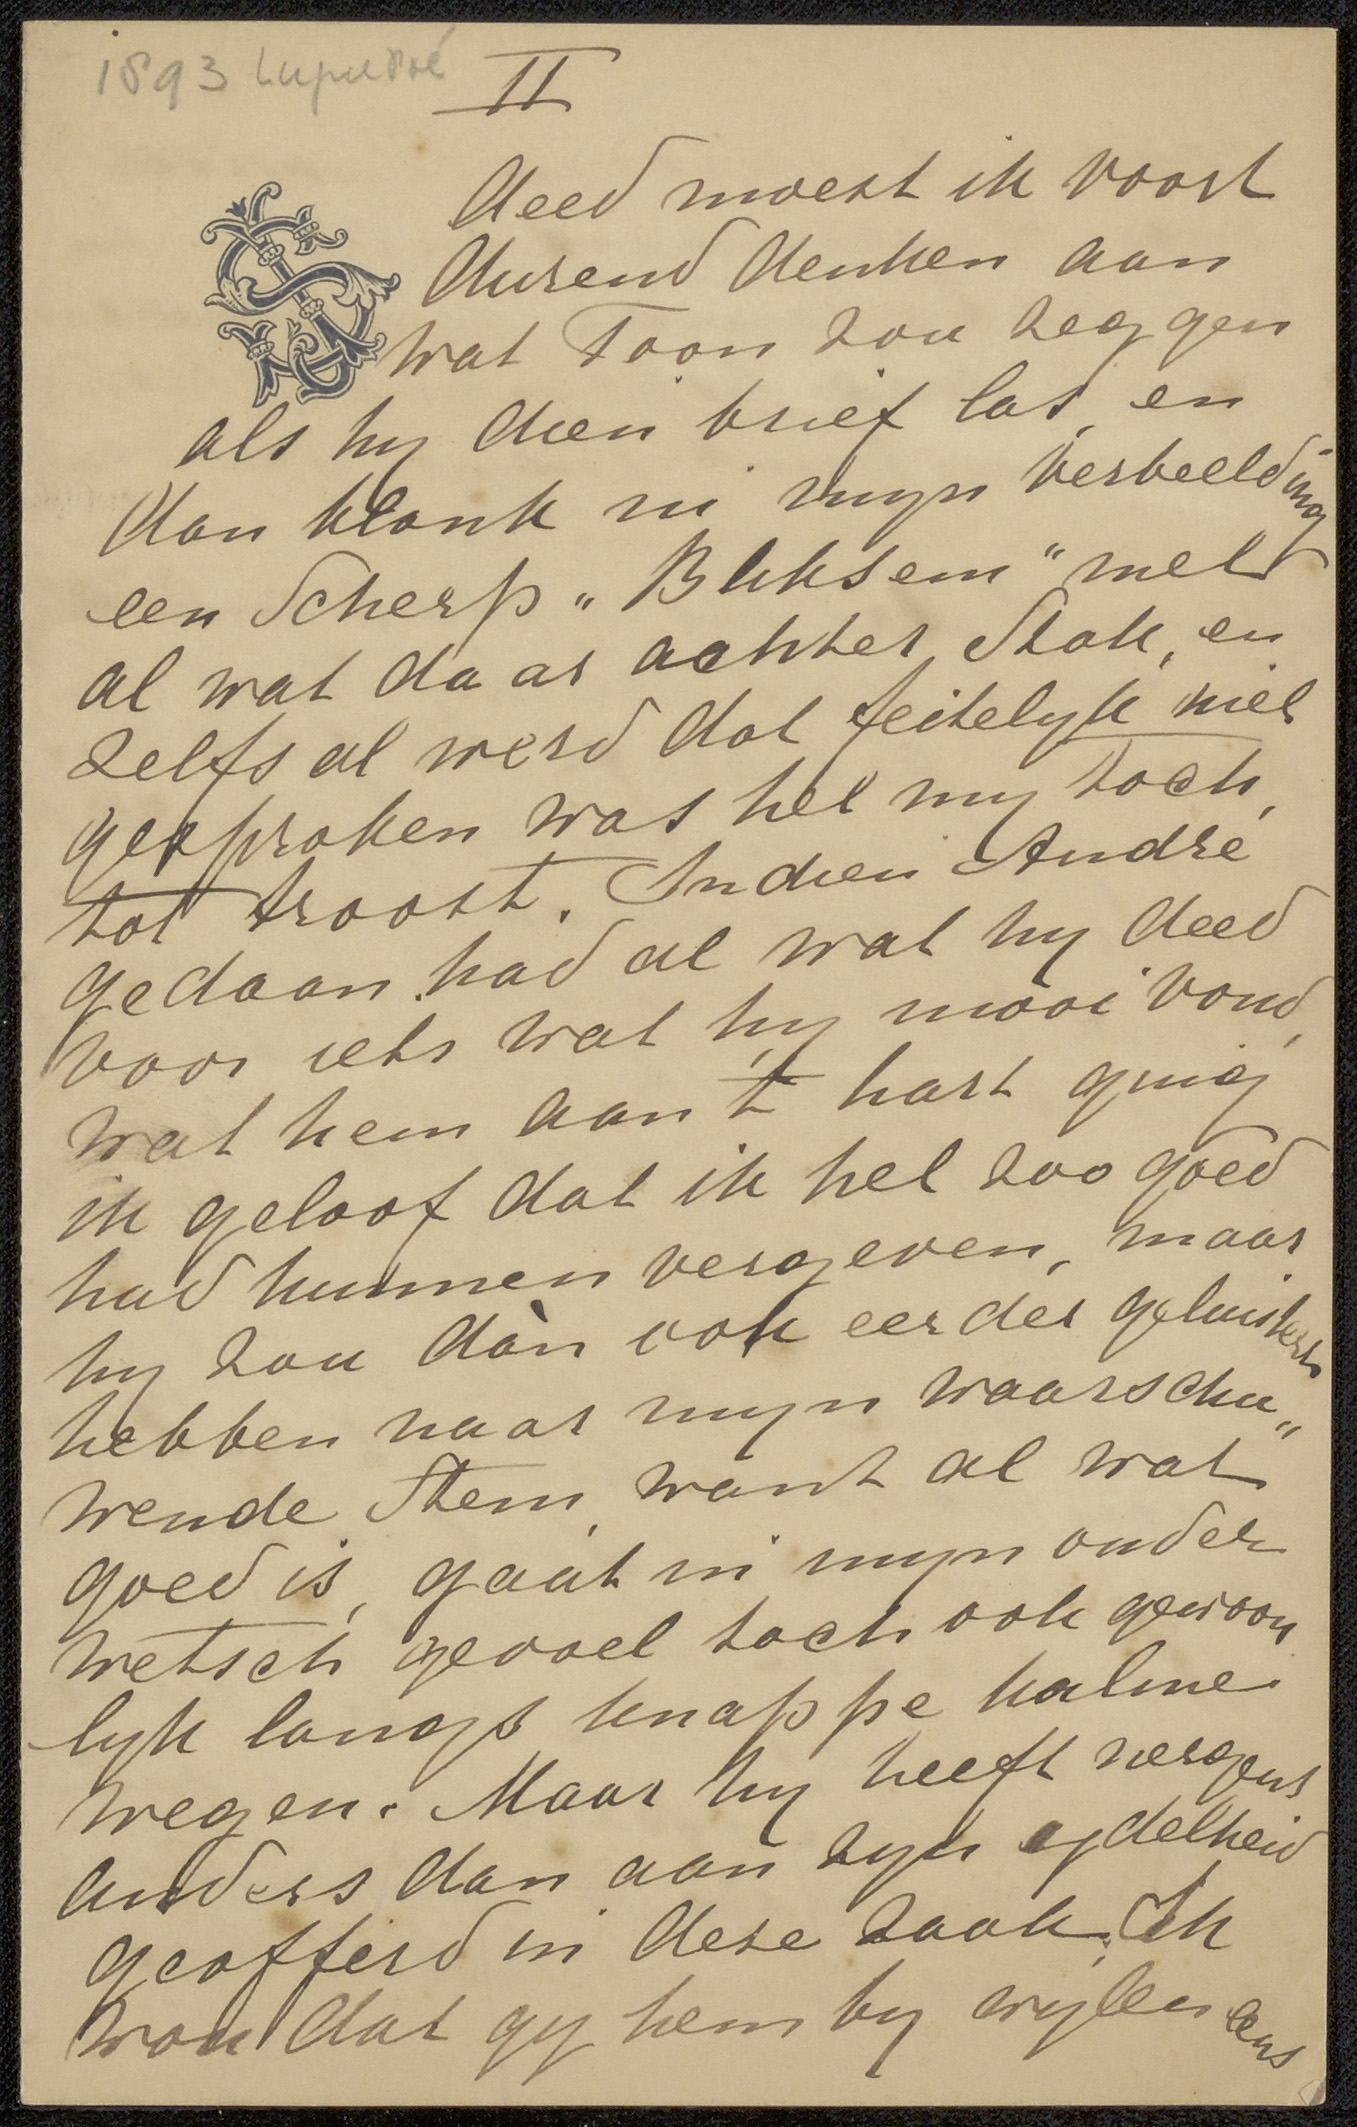 1893
II
deed moest ik voort
durend denken aan
wat Toon zou zeggen
als hy dien brief las, en
dan klonk in myn verbeelding
een scherp „Bliksem" met
al wat daar achter stak, en
zelfs al werd dat feitelyk niet
gesproken was het my toch,
tot troost. Indien André
gedaan had al wat hy deed
voor iets wat hy mooi vond,
wat hem aan 't hart ging
ik geloof dat ik het zoo goed
had kunnen vergeven, maar
hy zou dàn ook eerder geluisterd
hebben naar myn waarschu„
wende stem, want al wat
goed is, gaat in myn ouder
wetsch gevoel toch ook gewoon
lyk langs knappe kalme
wegen. Maar hy heeft nergens
anders dan aan zyn ydelheid
geofferd in deze zaak. Ik
wou dat gy hem by wylen eens